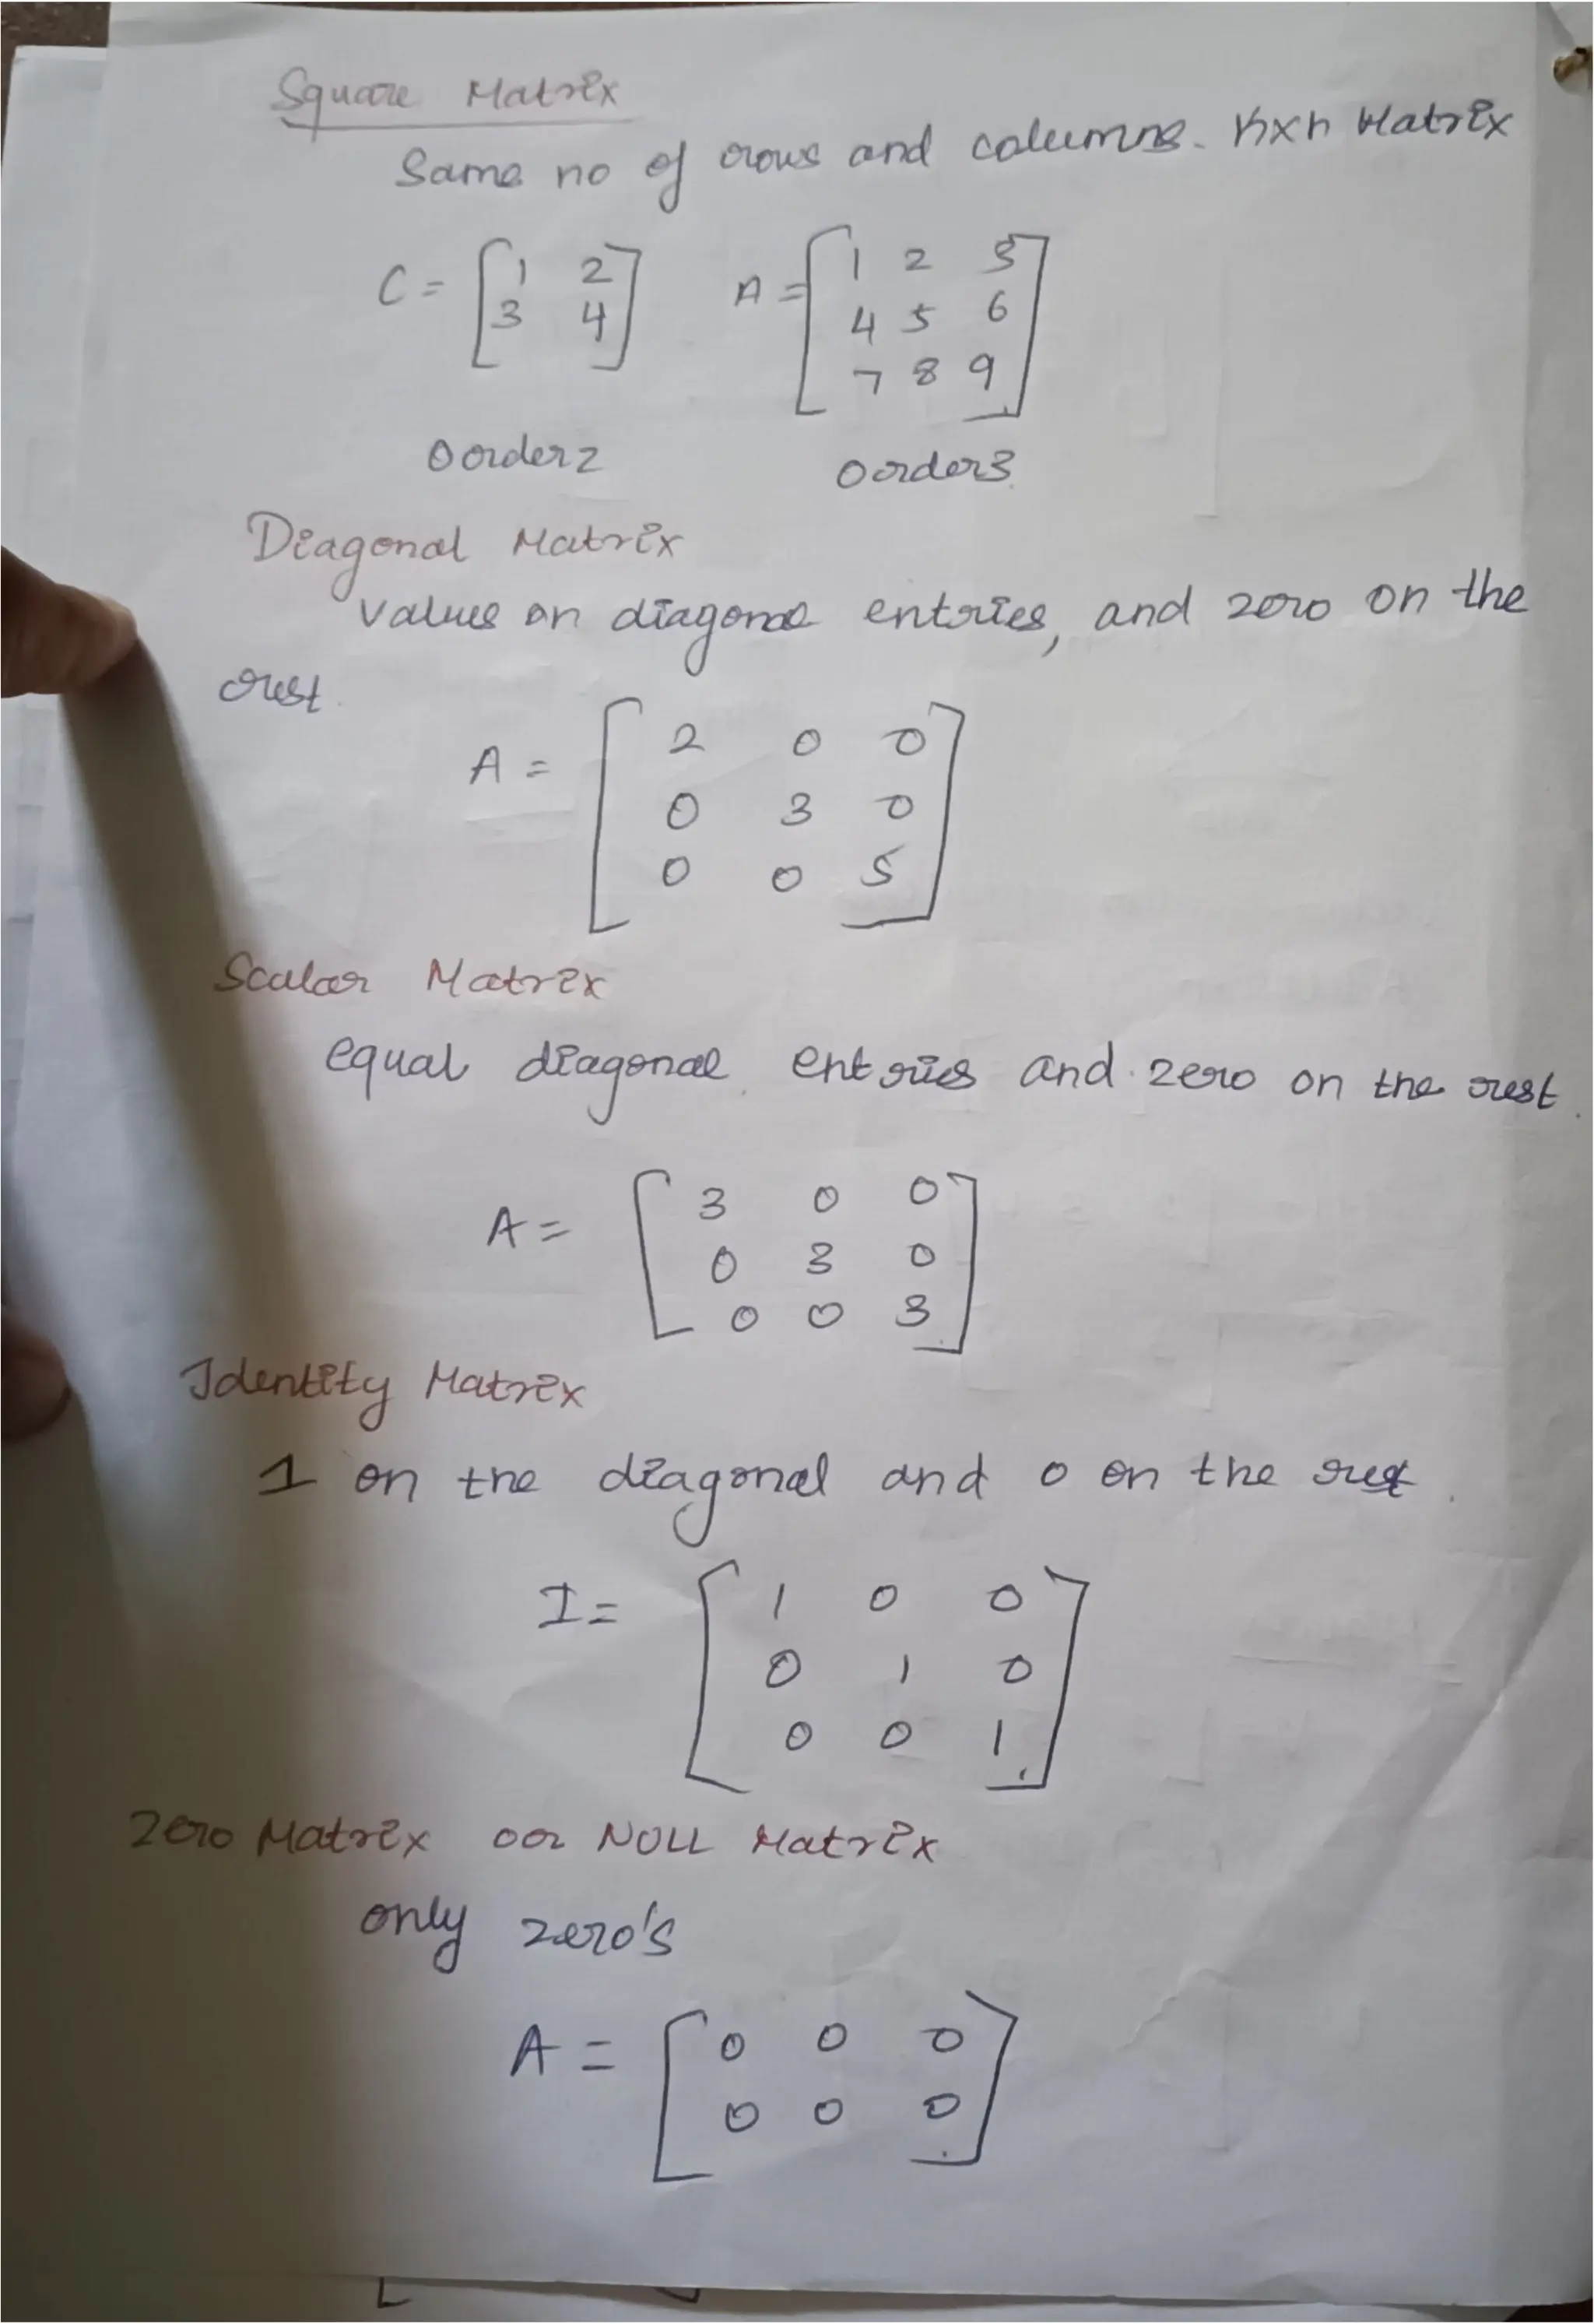 Square Matrix
Same no of rows and columns. nxn Matrix
C = [1 2   A = [1 2 3
3 4]   4 5 6
7 8 9]
Oorder2   Oorder3.
Diagonal Matrix
values on diagonal entries, and zero on the
rest.
A = [2 0 0
0 3 0
0 0 5]
Scalar Matrix
equal diagonal entries and zero on the rest
A = [3 0 0
0 3 0
0 0 3]
Identity Matrix
1 on the diagonal and 0 on the rest.
I = [1 0 0
0 1 0
0 0 1]
Zero Matrix oor NULL Matrix
only zero's
A = [0 0 0
0 0 0]